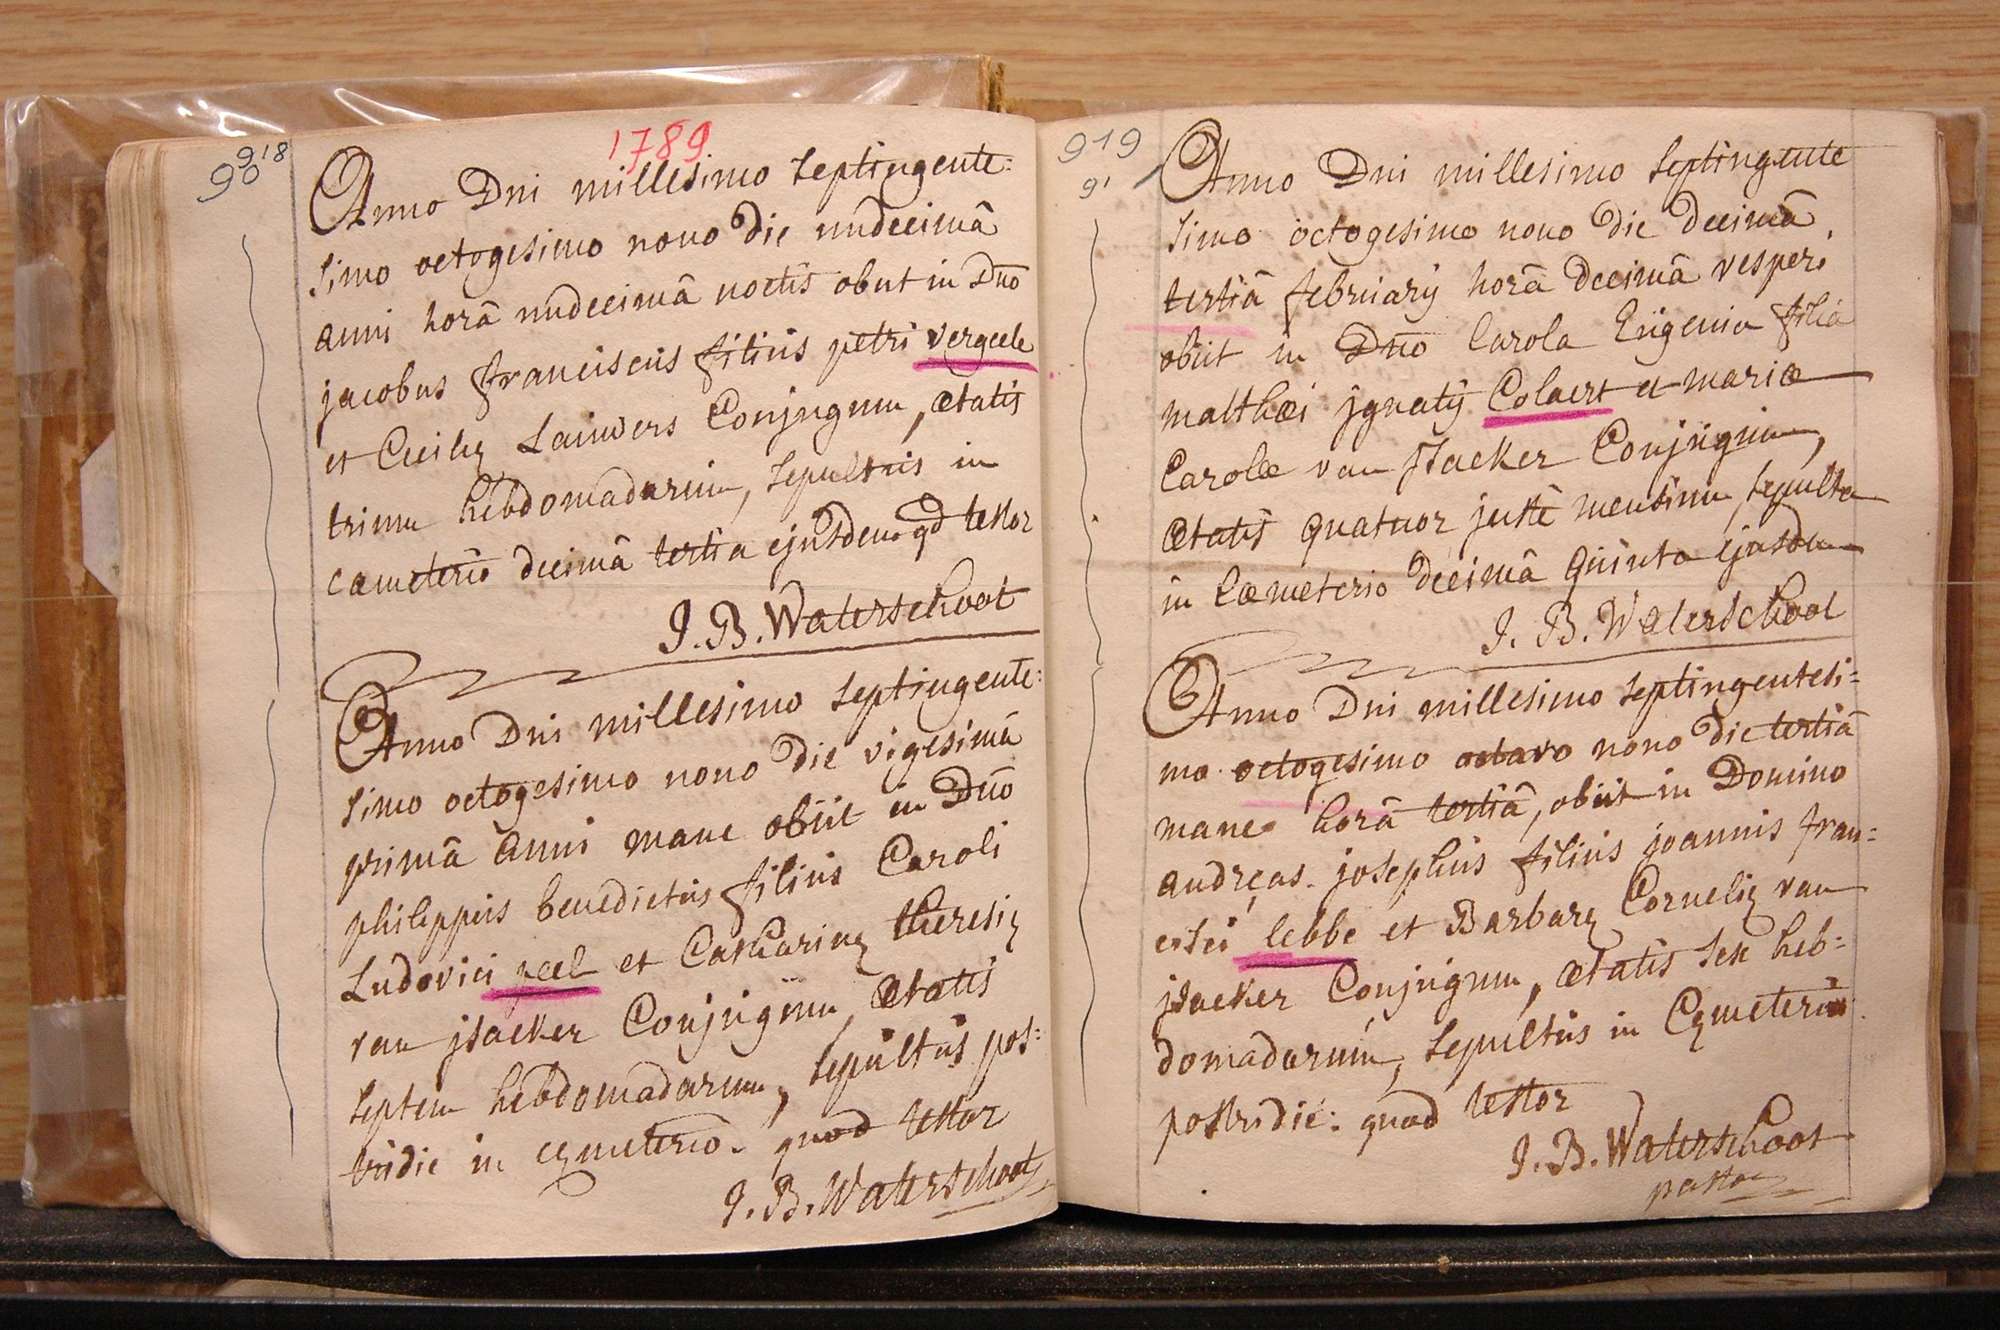 918
90
1789
Anno Dni millesimo septingente:
simo octogesimo nono die undecimâ
anni horâ undecimâ noctis obiit in Dno
jacobus franciscus filius petri vergeele
et Cecilię Lauwers Conjugum, ætatis
trium hebdomadarum, sepultus in
cæmeterio decimâ tertia ejusdem qd testor
J. B. Waterschoot
Anno Dni millesimo septingente:
simo octogesimo nono die vigesimâ
primâ anni mane obiit in Dno
philippus benedictus filius Caroli
Ludovici pæl et Catharinę theresię
van jsacker Conjugum, ætatis
septem hebdomadarum, sepultus pos:
tridie in cęmeterio. quod testor
J. B. Waterschoot
919
91
Anno Dni millesimo septingente
simo octogesimo nono die decimâ
tertiâ februarÿ horâ decimâ vesperi
obiit in Dno Carola Eugenia filia
matthæi jgnatÿ Colaert et mariæ
Carolæ van jsacker Conjugum,
ætatis quatuor justè mensium, sepulta
in Cæmeterio decimâ quinta ejusdem
J. B. Waterschoot
Anno Dni millesimo septingentesi:
mo octogesimo octavo nono die tertiâ
mane horâ tertiâ, obiit in Domino
andreas josephus filius joannis fran:
cisci lebbe et Barbarę Cornelię van
jsacker Conjugum, ætatis sex heb:
domadarum, sepultus in Cęmeterio
postridie: quod testor
J. B. Waterschoot
pastor